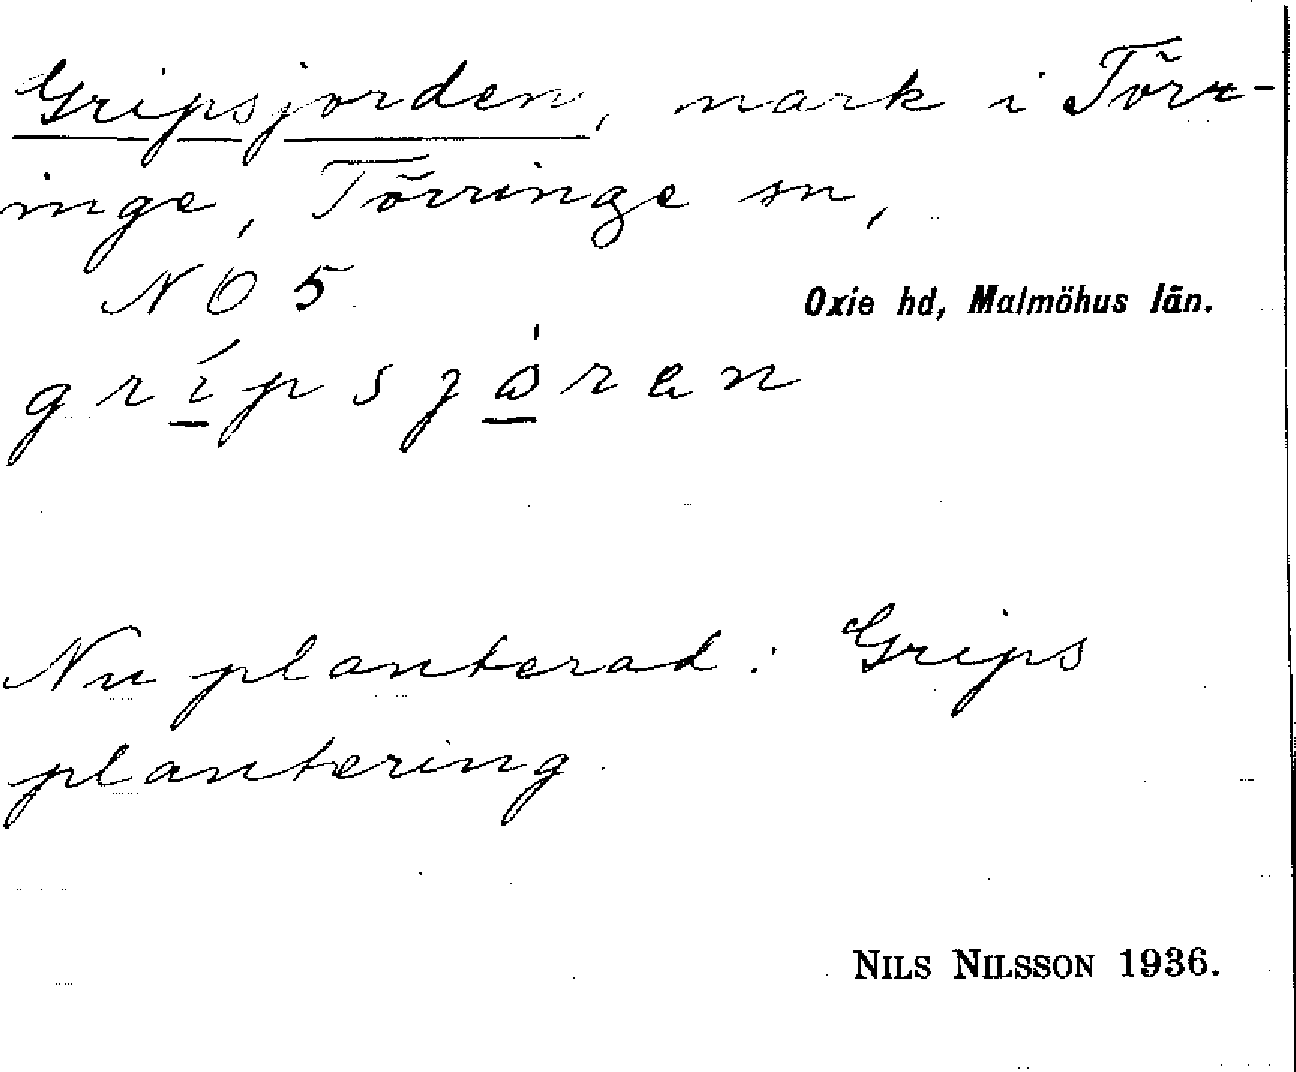 Gripsjorden, mark i Törr-
inge, Törringe sn,
NÖ 5
Oxie hd, Malmöhus län.
Nu planterad: Grips
plantering
NILS NILSSON 1936.